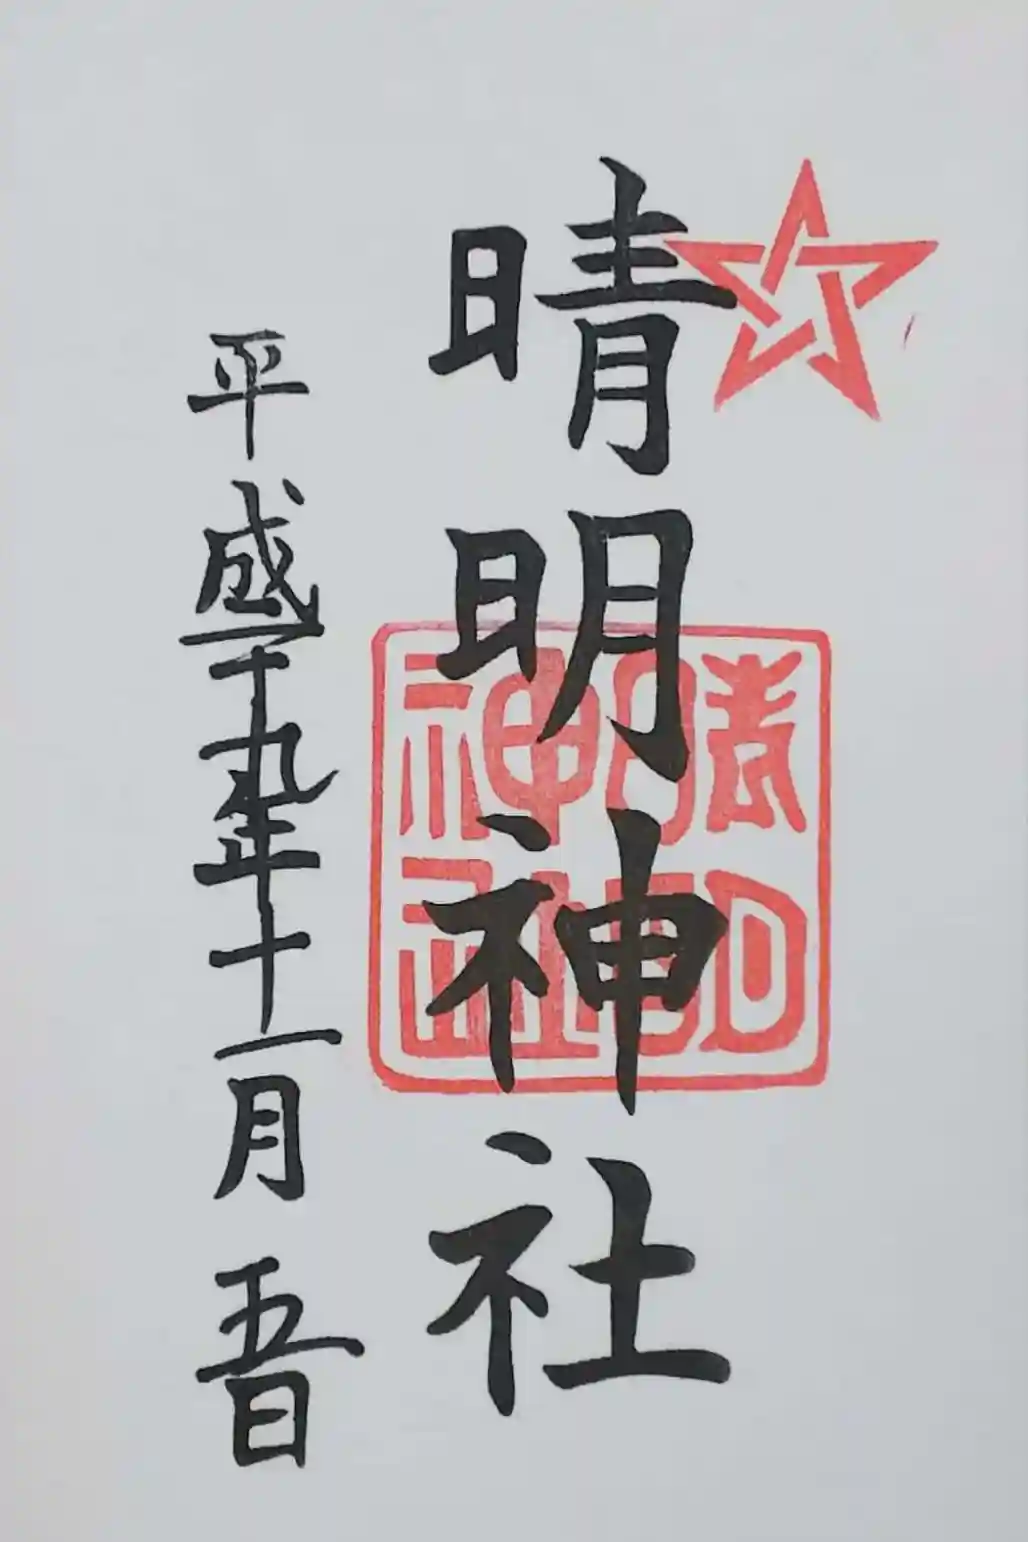 晴明神社
平成二十九年十一月五日
晴明神社印